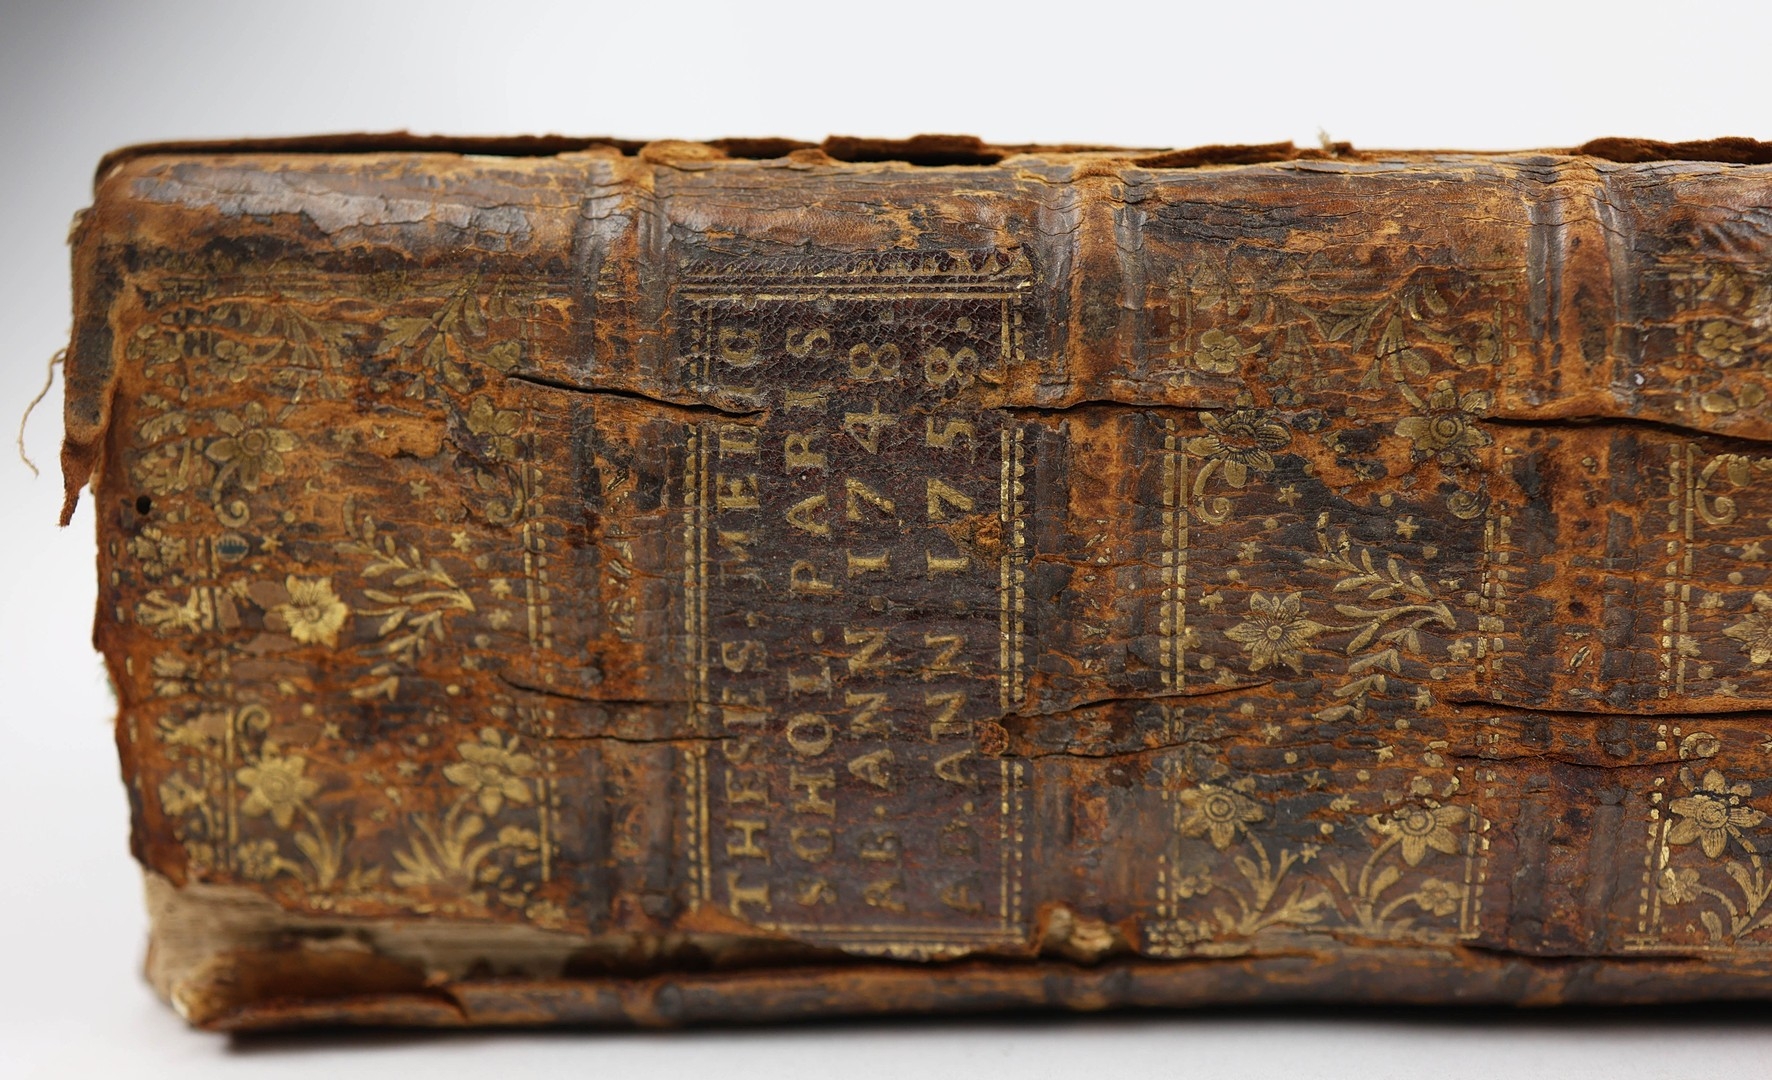 THESES. MEDIC
SCHOL. PARIS.
AB. ANN. 1748
AD. ANN. 1758.